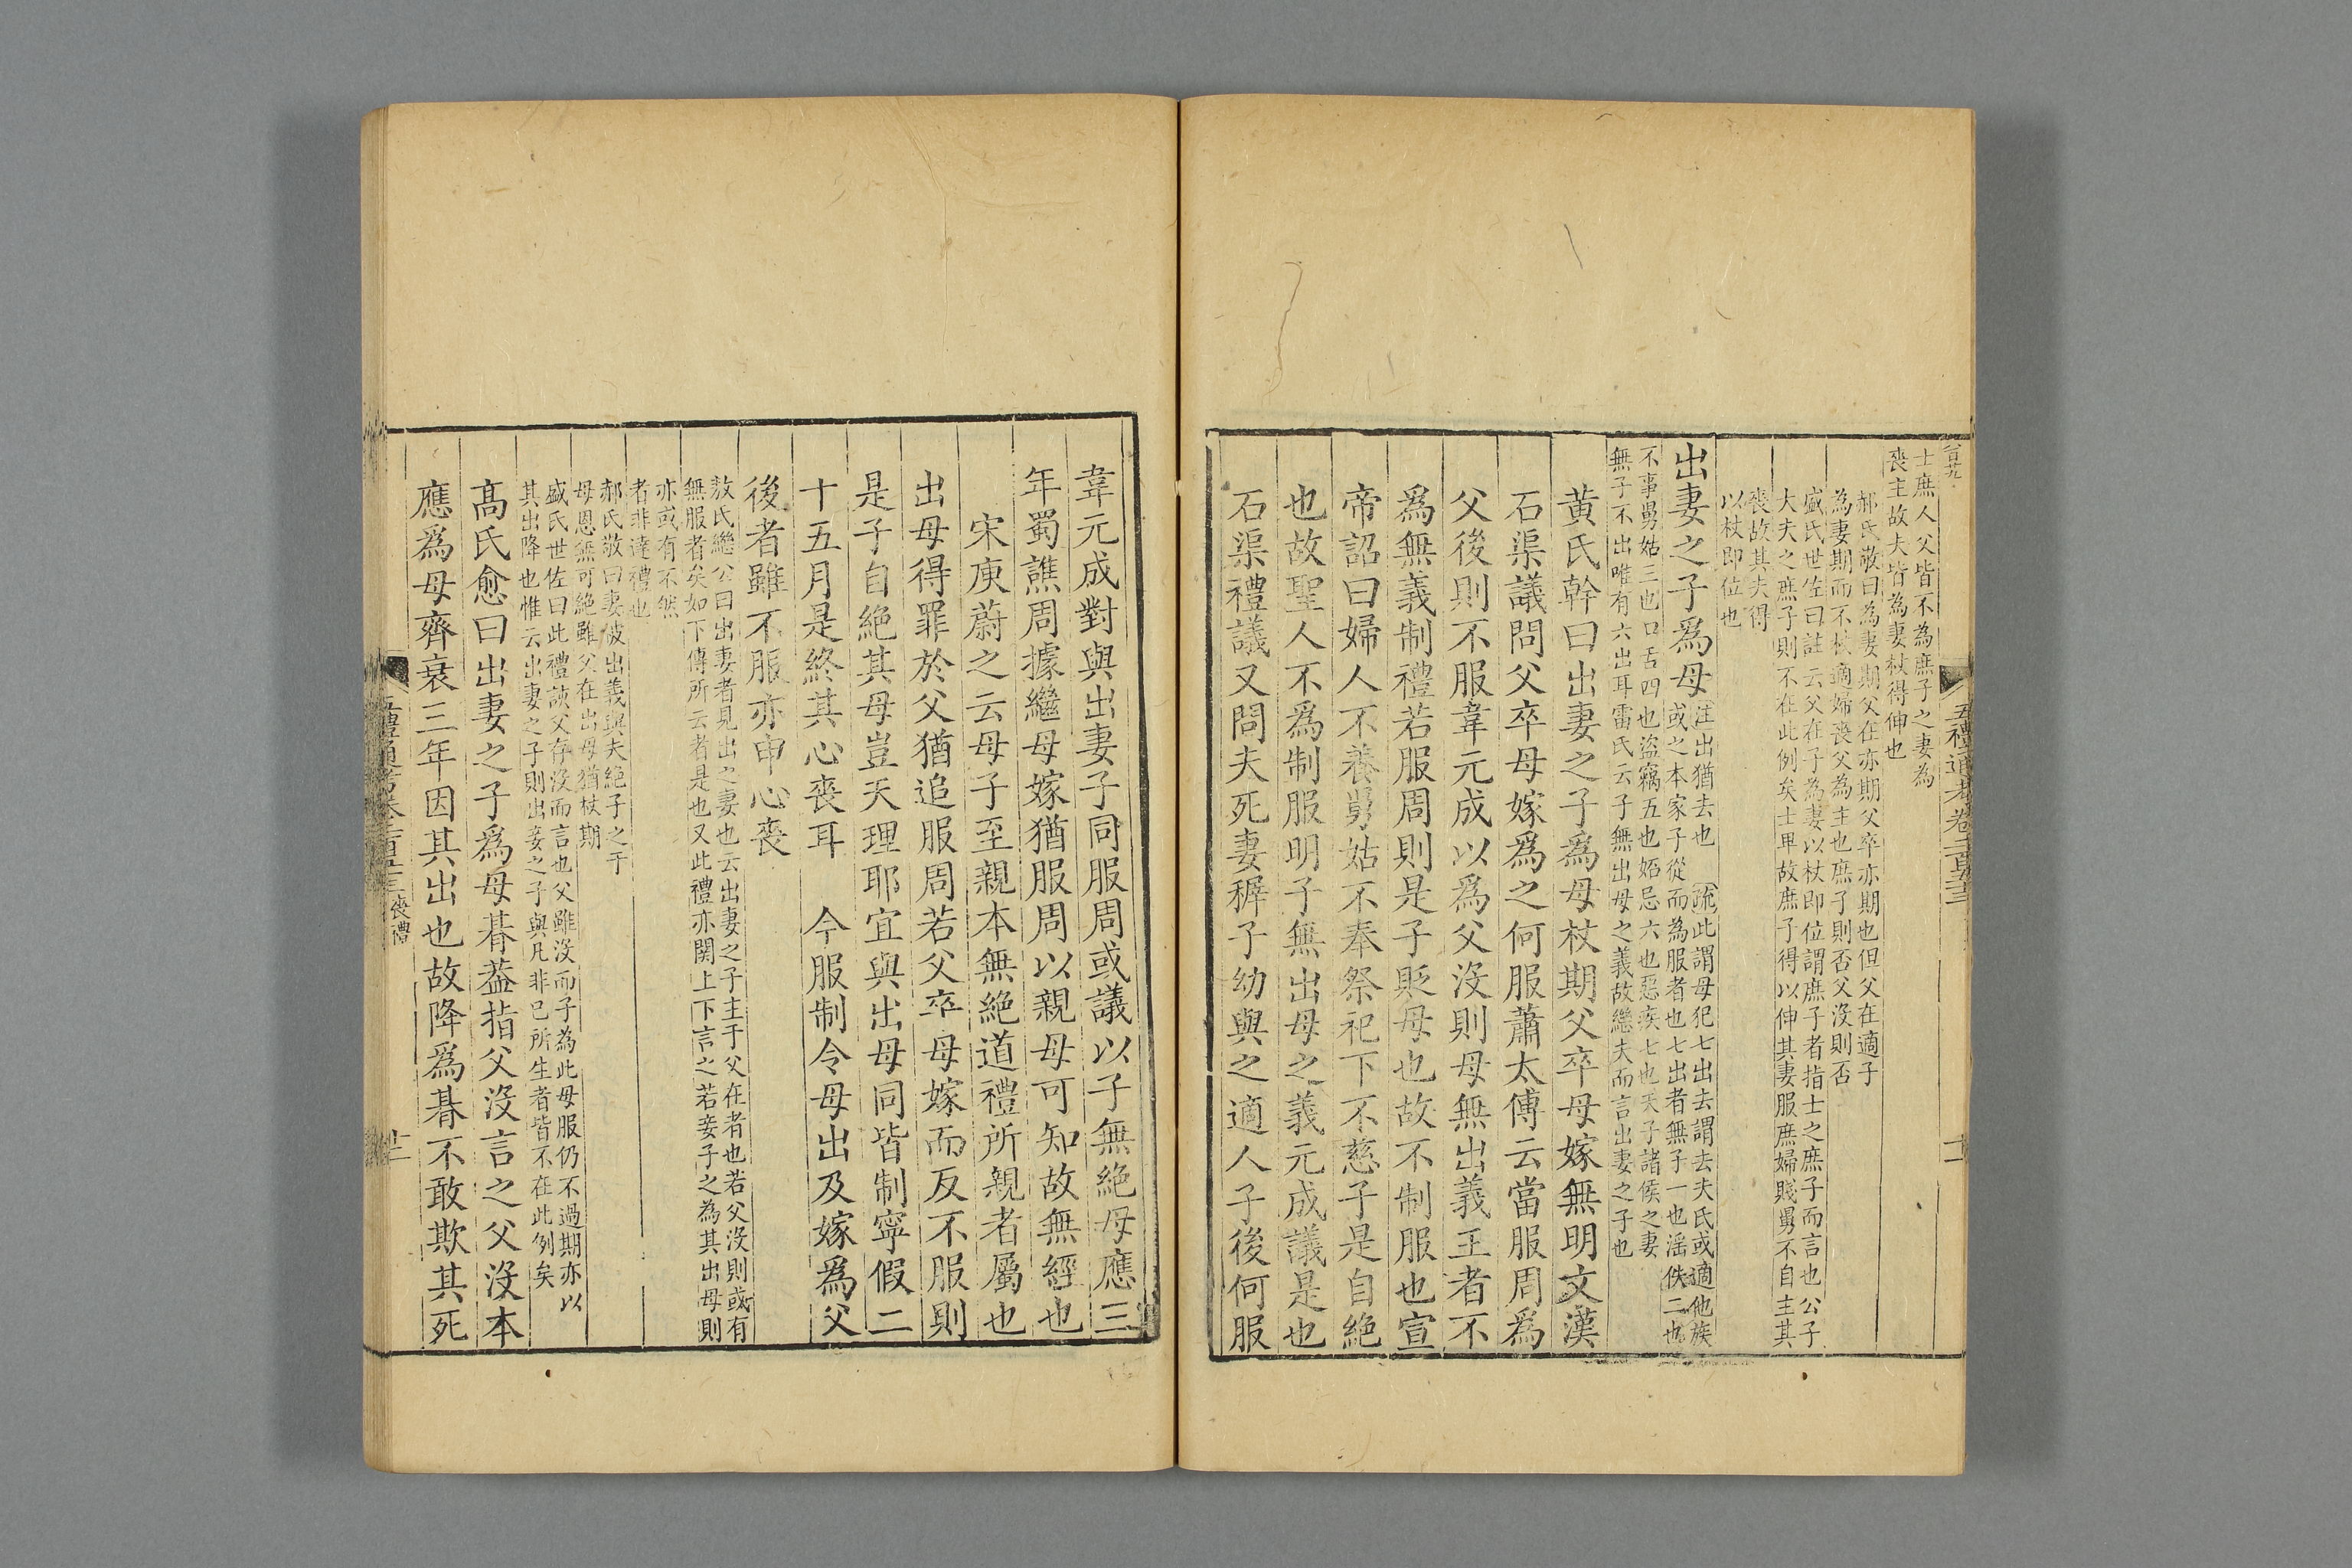 士庶人父皆不為庶子之妻為
喪主故夫皆為妻杖得伸也
郝氏敬曰為妻期父在亦期父卒亦期也但父在適子
為妻期而不杖適婦喪父為主也庶子則否父沒則否
盛氏世佐曰註云父在子為妻以杖即位謂庶子者指士之庶子而言也公子
大夫之庶子則不在此例矣士卑故庶子得以伸其妻服庶婦賤舅不自主其
喪故其夫得
以杖即位也
出妻之子爲母
注出猶去也 疏此謂母犯七出去謂去夫氏或適他族
或之本家子從而為服者也七出者無子一也淫佚二也
不事舅姑三也口舌四也盜竊五也妬忌六也惡疾七也天子諸侯之妻
無子不出唯有六出耳雷氏云子無出母之義故繼夫而言出妻之子也
黃氏榦曰出妻之子爲母杖期父卒母嫁無明文漢
石渠議問父卒母嫁爲之何服蕭太傅云當服周爲
父後則不服韋元成以爲父沒則母無出義王者不
爲無義制禮若服周則是子貶母也故不制服也宣
帝詔曰婦人不養舅姑不奉祭祀下不慈子是自絶
也故聖人不爲制服明子無出母之義元成議是也
石渠禮議又問夫死妻穉子幼與之適人子後何服
五禮通考卷二百五十三
十一
韋元成對與出妻子同服周或議以子無絶母應三
年蜀譙周據繼母嫁猶服周以親母可知故無經也
宋庾蔚之云母子至親本無絶道禮所親者屬也
出母得罪於父猶追服周若父卒母嫁而反不服則
是子自絶其母豈天理耶宜與出母同皆制寧假二
十五月是終其心喪耳 今服制令母出及嫁爲父
後者雖不服亦申心喪
敖氏繼公曰出妻者見出之妻也云出妻之子主于父在者也若父沒則或有
無服者矣如下傳所云者是也又此禮亦関上下言之若妾子之為其出母則
亦或有不然
者非達禮也
郝氏敬曰妻被出義與夫絶子之于
母恩無可絶雖父在出母猶杖期
盛氏世佐曰此禮該父存沒而言也父雖沒而子為此母服仍不過期亦以
其出降也惟云出妻之子則出妾之子與凡非己所生者皆不在此例矣
髙氏愈曰出妻之子爲母朞葢指父沒言之父沒本
應爲母齊衰三年因其出也故降爲朞不敢欺其死
五禮通考卷二百五十三 喪禮